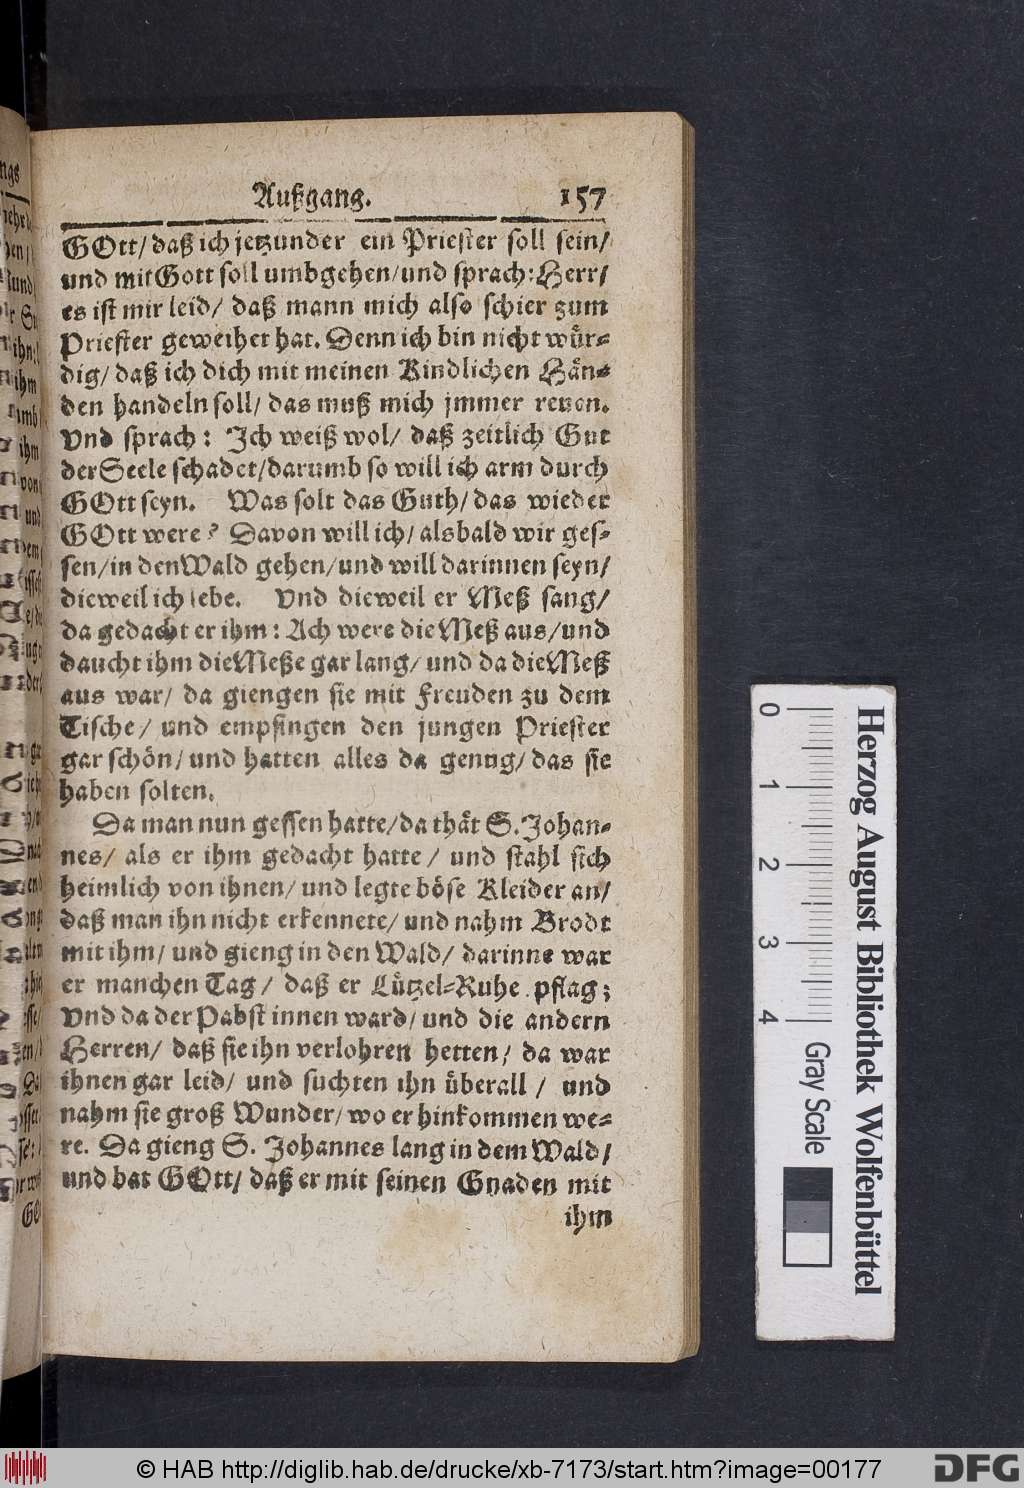 Außgang. 157
GOtt/ daß ich jetzunder ein Priester soll sein/
und mit Gott soll umbgehen/ und sprach: Herr/
es ist mir leid/ daß mann mich also schier zum
Priester geweihet hat. Denn ich bin nicht wür-
dig/ daß ich dich mit meinen Kindlichen Hän-
den handeln soll/ das muß mich jmmer reuen.
Vnd sprach: Ich weiß wol/ daß zeitlich Gut
der Seele schadet/ darumb so will ich arm durch
GOtt seyn. Was solt das Guth/ das wieder
GOtt were? Davon will ich/ alsbald wir ges-
sen/ in den Wald gehen/ und will darinnen seyn/
dieweil ich lebe. Vnd dieweil er Meß sang/
da gedacht er ihm: Ach were die Meß aus/ und
daucht ihm die Meße gar lang/ und da die Meß
aus war/ da giengen sie mit Freuden zu dem
Tische/ und empfingen den jungen Priester
gar schön/ und hatten alles da genug/ das sie
haben solten.
Da man nun gessen hatte/ da thät S. Johan-
nes/ als er ihm gedacht hatte/ und stahl sich
heimlich von ihnen/ und legte böse Kleider an/
daß man ihn nicht erkennete/ und nahm Brodt
mit ihm/ und gieng in den Wald/ darinne war
er manchen Tag/ daß er Lützel-Ruhe pflag;
Vnd da der Pabst innen ward/ und die andern
Herren/ daß sie ihn verlohren hetten/ da war
ihnen gar leid/ und suchten ihn überall/ und
nahm sie groß Wunder/ wo er hinkommen we-
re. Da gieng S. Johannes lang in dem Wald/
und bat GOtt/ daß er mit seinen Gnaden mit
ihm
0 1 2 3 4
Gray Scale
Herzog August Bibliothek Wolfenbüttel
© HAB http://diglib.hab.de/drucke/xb-7173/start.htm?image=00177
DFG